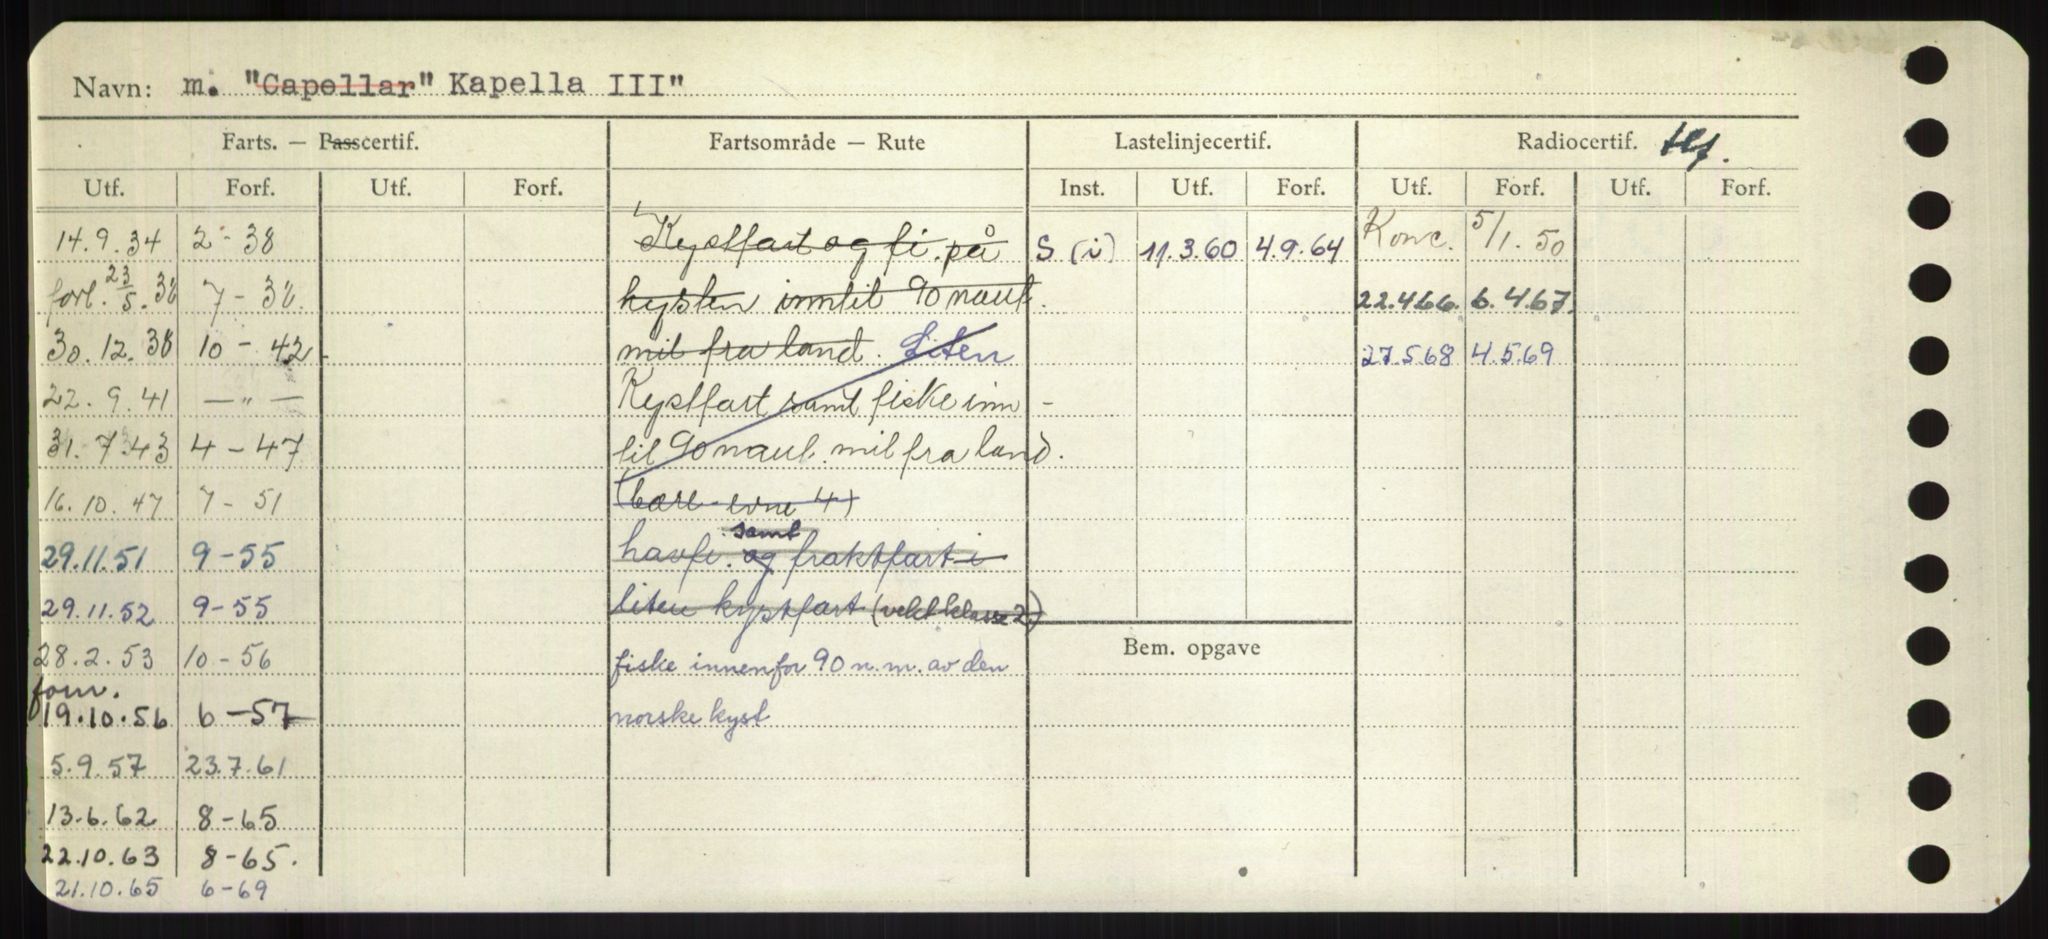 Navn: m. "Capellar" Kapella III"
Farts. — Passcertif. Fartsområde — Rute Lastelinjecertif. Radiocertif. tlf.
Utf. Forf. Utf. Forf. Inst. Utf. Forf. Utf. Forf. Utf. Forf.
14.9.34 2-38 Kystfart og fi. på S (i) 11.3.60 4.9.64 Konc. 5/1.50
forl. 23/5.38 7-38. kysten inntil 90 naut. 22.4.66. 6.4.67.
30.12.38 10-42 mil fra land. Liten 27.5.68 4.5.69
22.9.41 — " — Kystfart samt fiske inn-
31.7.43 4-47 til 90 naut. mil fra land.
16.10.47 7-51
samt
29.11.51 9-55 havfi. og fraktfart i
29.11.52 9-55 liten kystfart (vekt klasse 2)
Bem. opgave
28.2.53 10-56 fiske innenfor 90 n.m. av den
forn.
19.10.56 6-57 norske kyst
5.9.57 23.7.61
13.6.62 8-65
22.10.63 8-65.
21.10.65 6-69